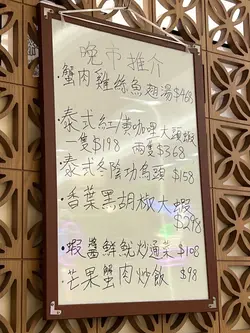 晚市推介
·蟹肉雞絲魚翅湯$168
·泰式紅/黃咖哩大頭蝦
一隻$198 兩隻$368
·泰式冬陰功魚頭 $158
·香葉黑胡椒大蝦
$298
·蝦醬鮮魷炒通菜 $108
·芒果蟹肉炒飯 $98